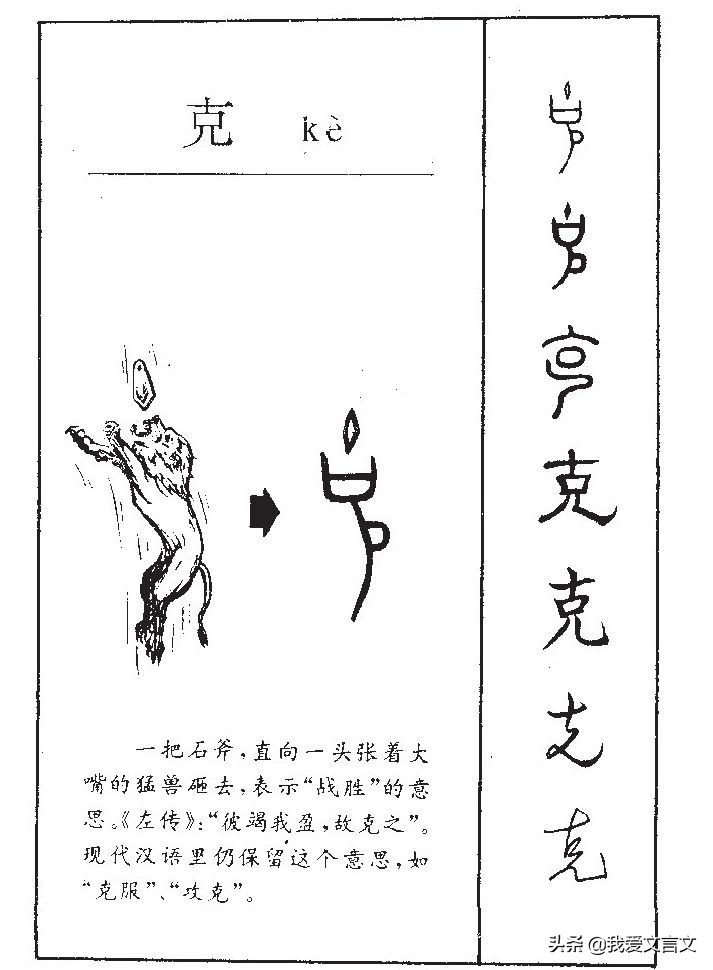 克 kè
一把石斧，直向一头张着大
嘴的猛兽砸去，表示“战胜”的意
思。《左传》：“彼竭我盈，故克之”。
现代汉语里仍保留这个意思，如
“克服”、“攻克”。
克
克
克
克
头条 @我爱文言文